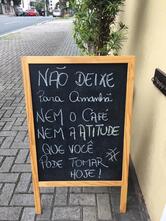 NÃO DEIXE
Para Amanhã
NEM O CAFÉ
NEM A ATITUDE
QUE VOCÊ
PODE TOMAR
HOJE!